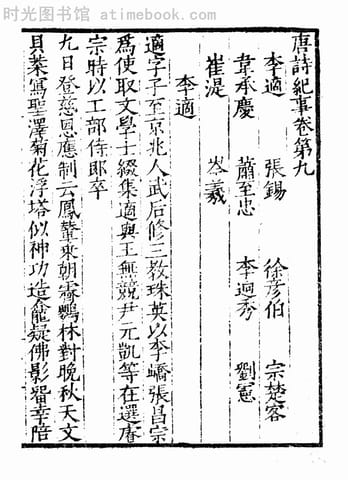 时光图书馆 atimebook.com
唐詩紀事卷第九
李適 張錫 徐彦伯 宗楚客
韋承慶 蕭至忠 李迥秀 劉憲
崔湜 岑羲
李適
適字子至京兆人武后修三教珠英以李嶠張昌宗
爲使取文學士綴集適與王無競尹元凱等在選睿
宗時以工部侍郎卒
九日登慈恩應制云鳳輦來朝霽鸚林對晚秋天文
貝葉寫聖澤菊花浮塔似神功造龕疑佛影留幸陪